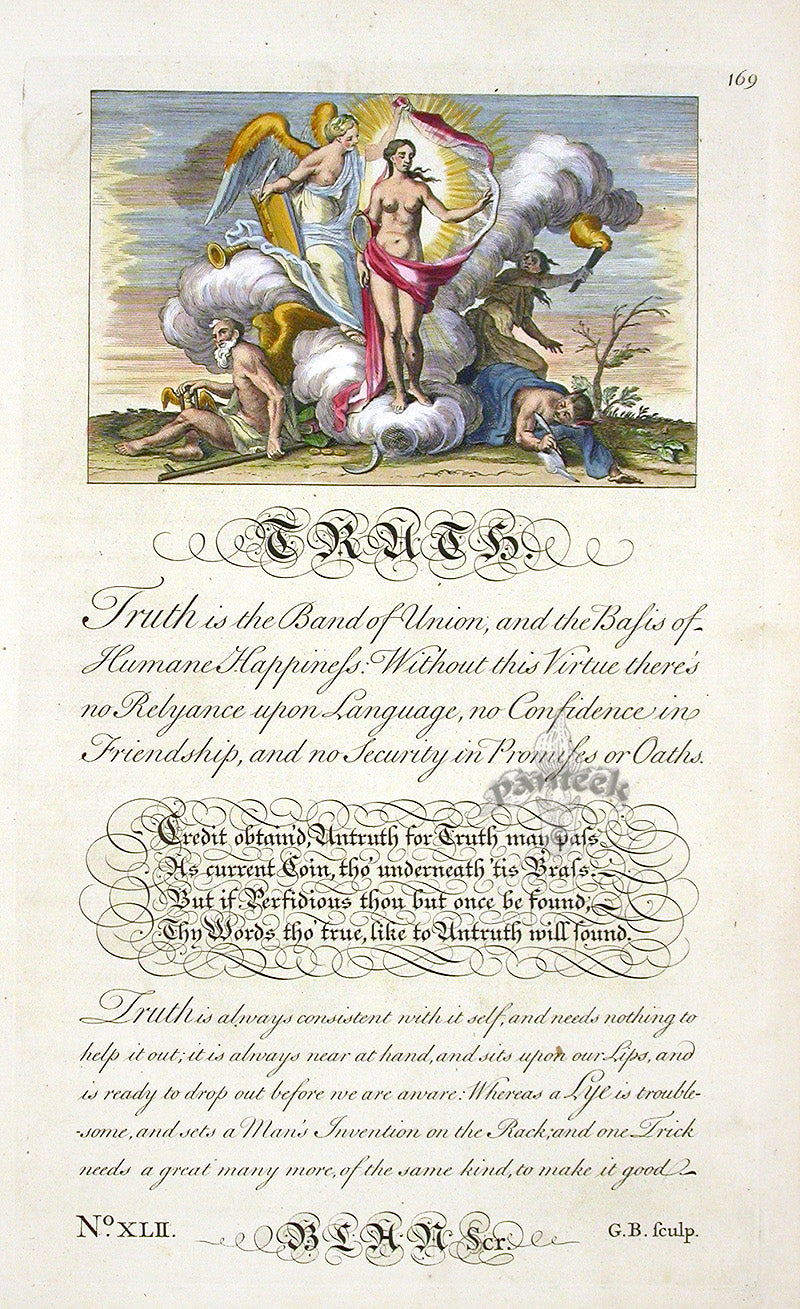 169
TRUTH.
Truth is the Band of Union, and the Baſis of
Humane Happineſs: Without this Virtue there's
no Relyance upon Language, no Confidence in
Friendship, and no Security in Promiſes or Oaths.
panteek
Credit obtain'd, Untruth for Truth may paſs
As current Coin, tho' underneath 'tis Braſs.
But if Perfidious thou but once be found,
Thy Words tho' true, like to Untruth will ſound.
Truth is always consistent with it self, and needs nothing to
help it out; it is always near at hand, and sits upon our Lips, and
is ready to drop out before we are aware: Whereas a Lye is trouble-
-some, and sets a Man's Invention on the Rack; and one Trick
needs a great many more, of the same kind, to make it good
No. XLII.
BLAN Scr.
G.B. ſculp.